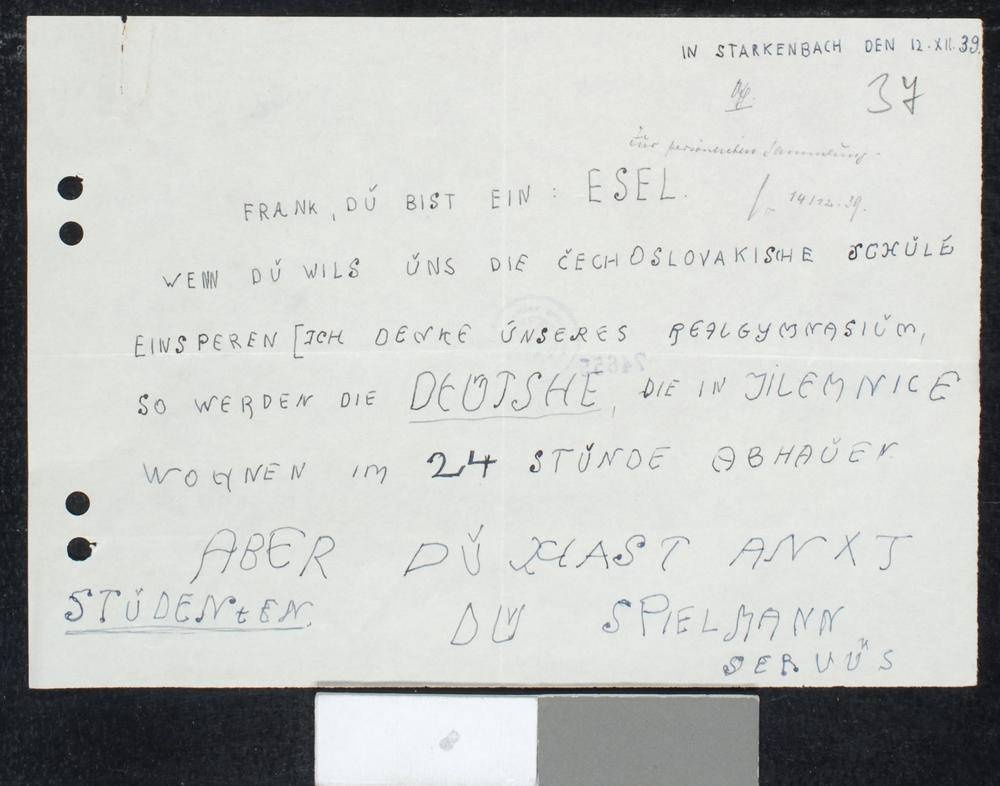 IN STARKENBACH DEN 12.XII.39.
37
Zur persönlichen Sammlung.
14/12.39.
FRANK, DŬ BIST EIN: ESEL.
WENN DŬ WILS ŬNS DIE ČECHOSLOVAKISCHE SCHŬLE
EINSPEREN [ICH DENKE ŬNSERES REALGYMNASIŬM,
SO WERDEN DIE DEŬTSHE, DIE IN JILEMNICE
WOHNEN IM 24 STŬNDE ABHAŬEN
ABER DŬ HAST ANXT
STŬDENtEN. DŬ SPIELMANN
SERVŬS